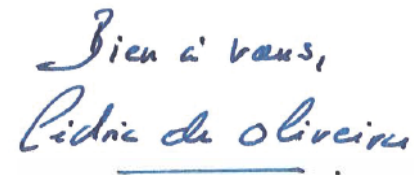 Bien à vous,
Cédric de Oliveira